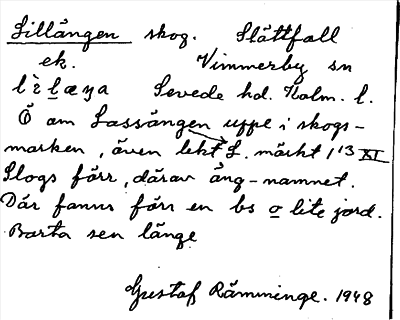 Lillängen skog. Slättfall
ek. Vimmerby sn
Sevede hd. Kalm. l.
Ö om Lassängen uppe i skogs-
marken, även lekt L. märkt 1/13 XI
Slogs förr, därav äng-namnet.
Där fanns förr en bs o lite jord.
Borta sen länge
Gustaf Rämminge. 1948